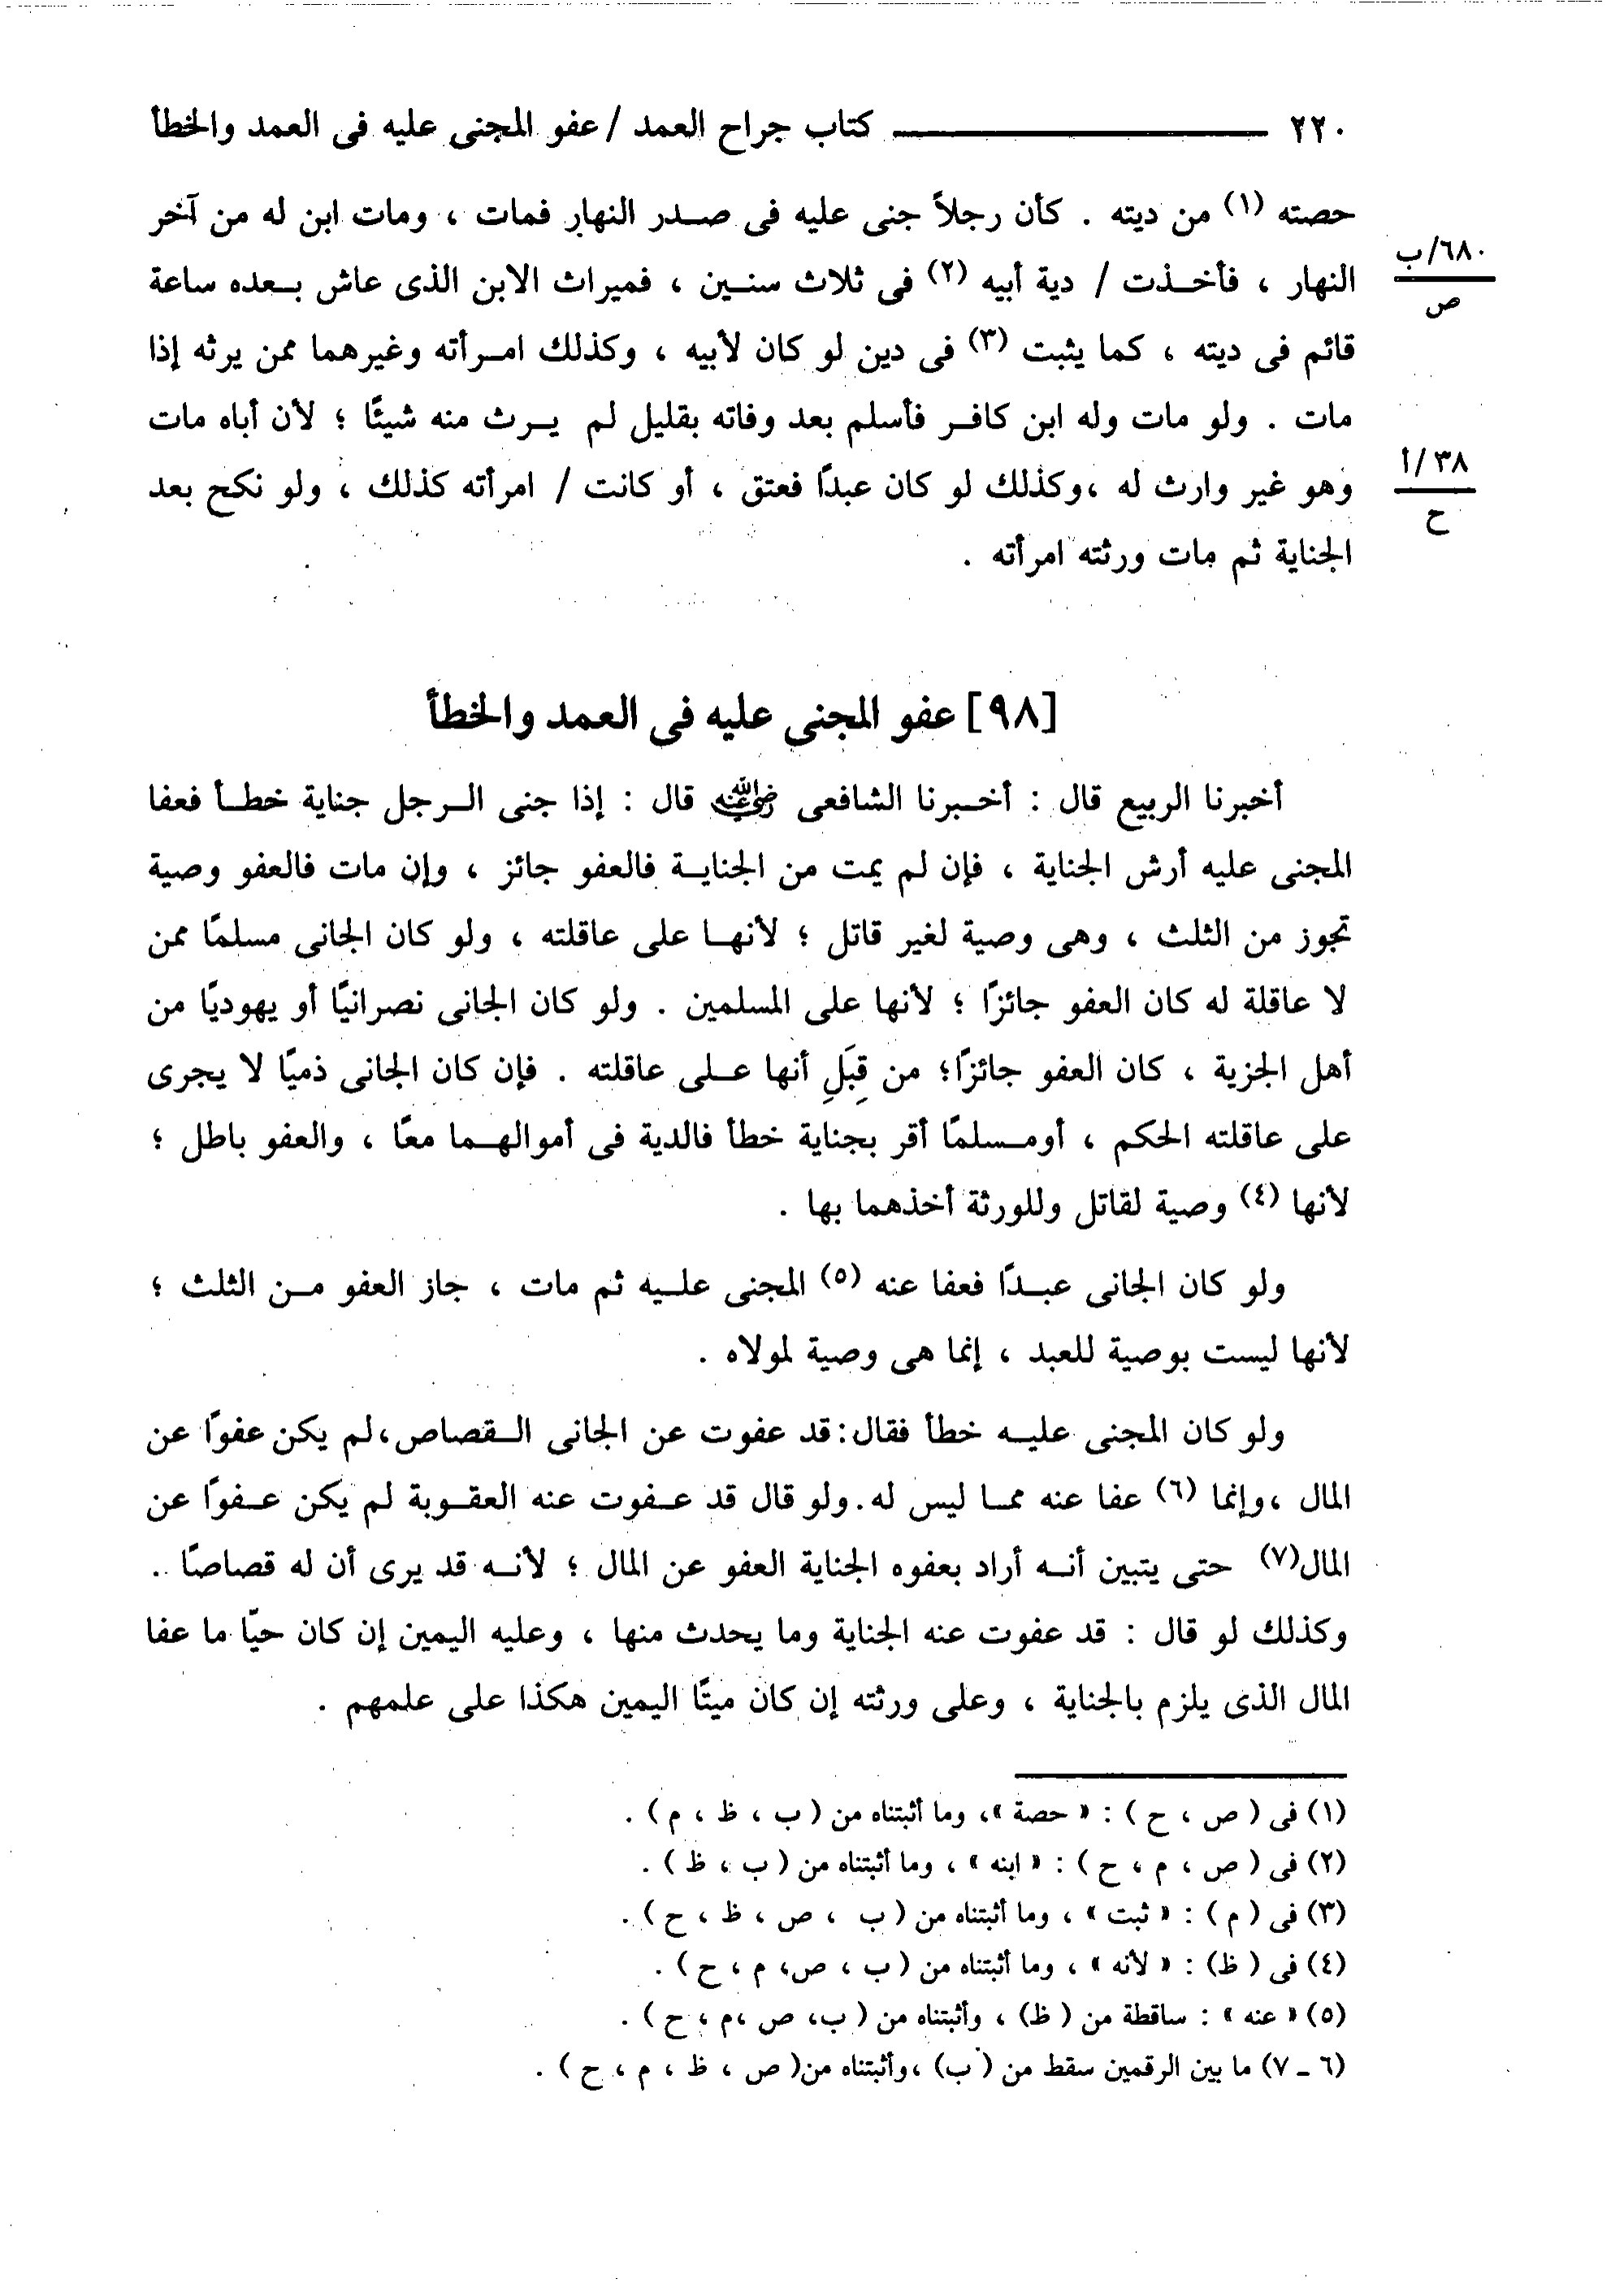 ٢٢٠ ــــــــــــــــــــ كتاب جراح العمد / عفو المجنى عليه فى العمد والخطأ
حصته (١) من ديته . كأن رجلاً جنى عليه فى صدر النهار فمات ، ومات ابن له من آخر
٦٨٠/ب
ص
النهار ، فأخذت / دية أبيه (٢) فى ثلاث سنين ، فميراث الابن الذى عاش بعده ساعة
قائم فى ديته ، كما يثبت (٣) فى دين لو كان لأبيه ، وكذلك امرأته وغيرهما ممن يرثه إذا
مات . ولو مات وله ابن كافر فأسلم بعد وفاته بقليل لم يرث منه شيئًا ؛ لأن أباه مات
٣٨/أ
ح
وهو غير وارث له ،وكذلك لو كان عبدًا فعتق ، أو كانت / امرأته كذلك ، ولو نكح بعد
الجناية ثم مات ورثته امرأته .
[٩٨] عفو المجنى عليه فى العمد والخطأ
أخبرنا الربيع قال : أخبرنا الشافعى رضي الله عنه قال : إذا جنى الرجل جناية خطأ فعفا
المجنى عليه أرش الجناية ، فإن لم يمت من الجناية فالعفو جائز ، وإن مات فالعفو وصية
تجوز من الثلث ، وهى وصية لغير قاتل ؛ لأنها على عاقلته ، ولو كان الجانى مسلمًا ممن
لا عاقلة له كان العفو جائزًا ؛ لأنها على المسلمين . ولو كان الجانى نصرانيًا أو يهوديًا من
أهل الجزية ، كان العفو جائزًا؛ من قِبَلِ أنها على عاقلته . فإن كان الجانى ذميًا لا يجرى
على عاقلته الحكم ، أومسلمًا أقر بجناية خطأ فالدية فى أموالهما معًا ، والعفو باطل ؛
لأنها (٤) وصية لقاتل وللورثة أخذهما بها .
ولو كان الجانى عبدًا فعفا عنه (٥) المجنى عليه ثم مات ، جاز العفو من الثلث ؛
لأنها ليست بوصية للعبد ، إنما هى وصية لمولاه .
ولو كان المجنى عليه خطأ فقال:قد عفوت عن الجانى القصاص،لم يكن عفوًا عن
المال ،وإنما (٦) عفا عنه مما ليس له.ولو قال قد عفوت عنه العقوبة لم يكن عفوًا عن
المال(٧) حتى يتبين أنه أراد بعفوه الجناية العفو عن المال ؛ لأنه قد يرى أن له قصاصًا .
وكذلك لو قال : قد عفوت عنه الجناية وما يحدث منها ، وعليه اليمين إن كان حيًا ما عفا
المال الذى يلزم بالجناية ، وعلى ورثته إن كان ميتًا اليمين هكذا على علمهم .
(١) فى ( ص ، ح ) : « حصة »، وما أثبتناه من ( ب ، ظ ، م ) .
(٢) فى ( ص ، م ، ح ) : « ابنه » ، وما أثبتناه من ( ب ، ظ ) .
(٣) فى ( م ) : « ثبت » ، وما أثبتناه من ( ب ، ص ، ظ ، ح ) .
(٤) فى ( ظ) : « لأنه » ، وما أثبتناه من ( ب ، ص، م ، ح ) .
(٥) « عنه » : ساقطة من ( ظ) ، وأثبتناه من ( ب، ص ،م ، ح ) .
(٦ ـ ٧) ما بين الرقمين سقط من ( ب) ،وأثبتناه من( ص ، ظ ، م ، ح ) .